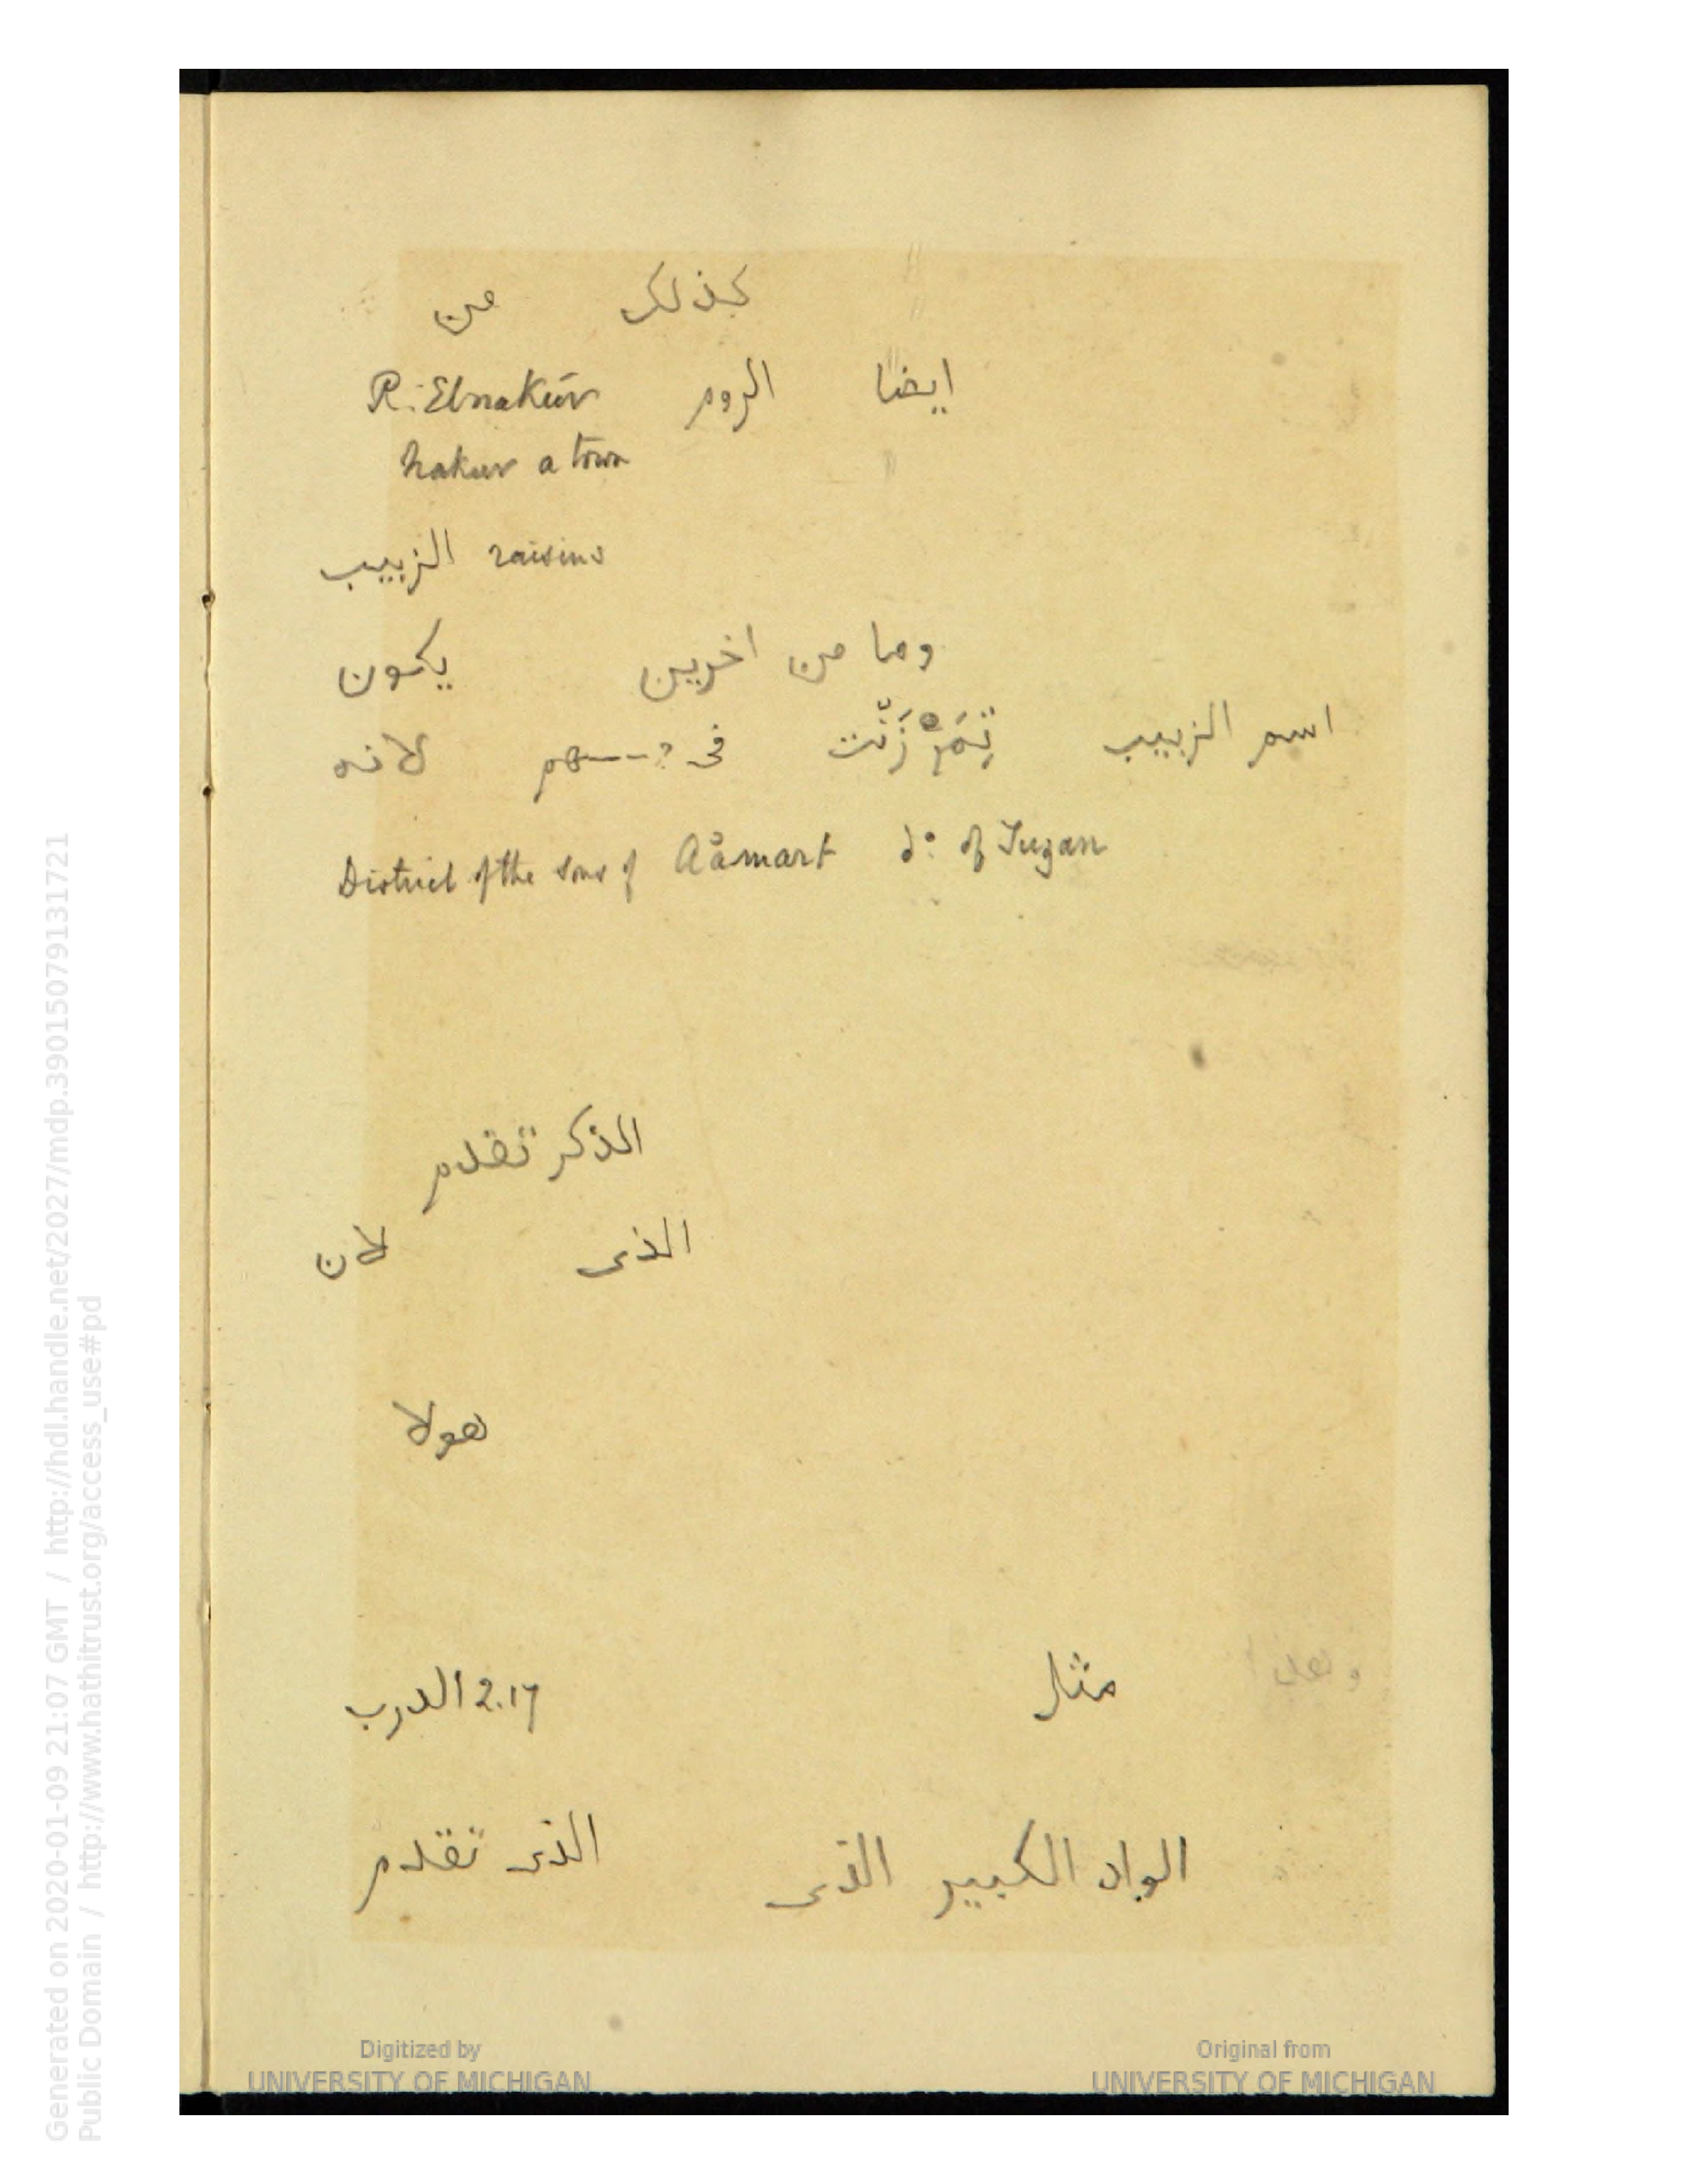 كذلك من
ايضا الروم R. Elnakūr
hakur a town
الزبيب raisins
وما من اخرين يكون
اسم الزبيب فى لانه
District of the sons of Aåmart do. of Tuzan
الذكر تقدم
الذى لان
هولا
مثل 2.17 الدرب
الواد الكبير الذى الذى تقدم
Digitized by
UNIVERSITY OF MICHIGAN
Original from
UNIVERSITY OF MICHIGAN
Generated on 2020-01-09 21:07 GMT / http://hdl.handle.net/2027/mdp.39015079131721
Public Domain / http://www.hathitrust.org/access_use#pd